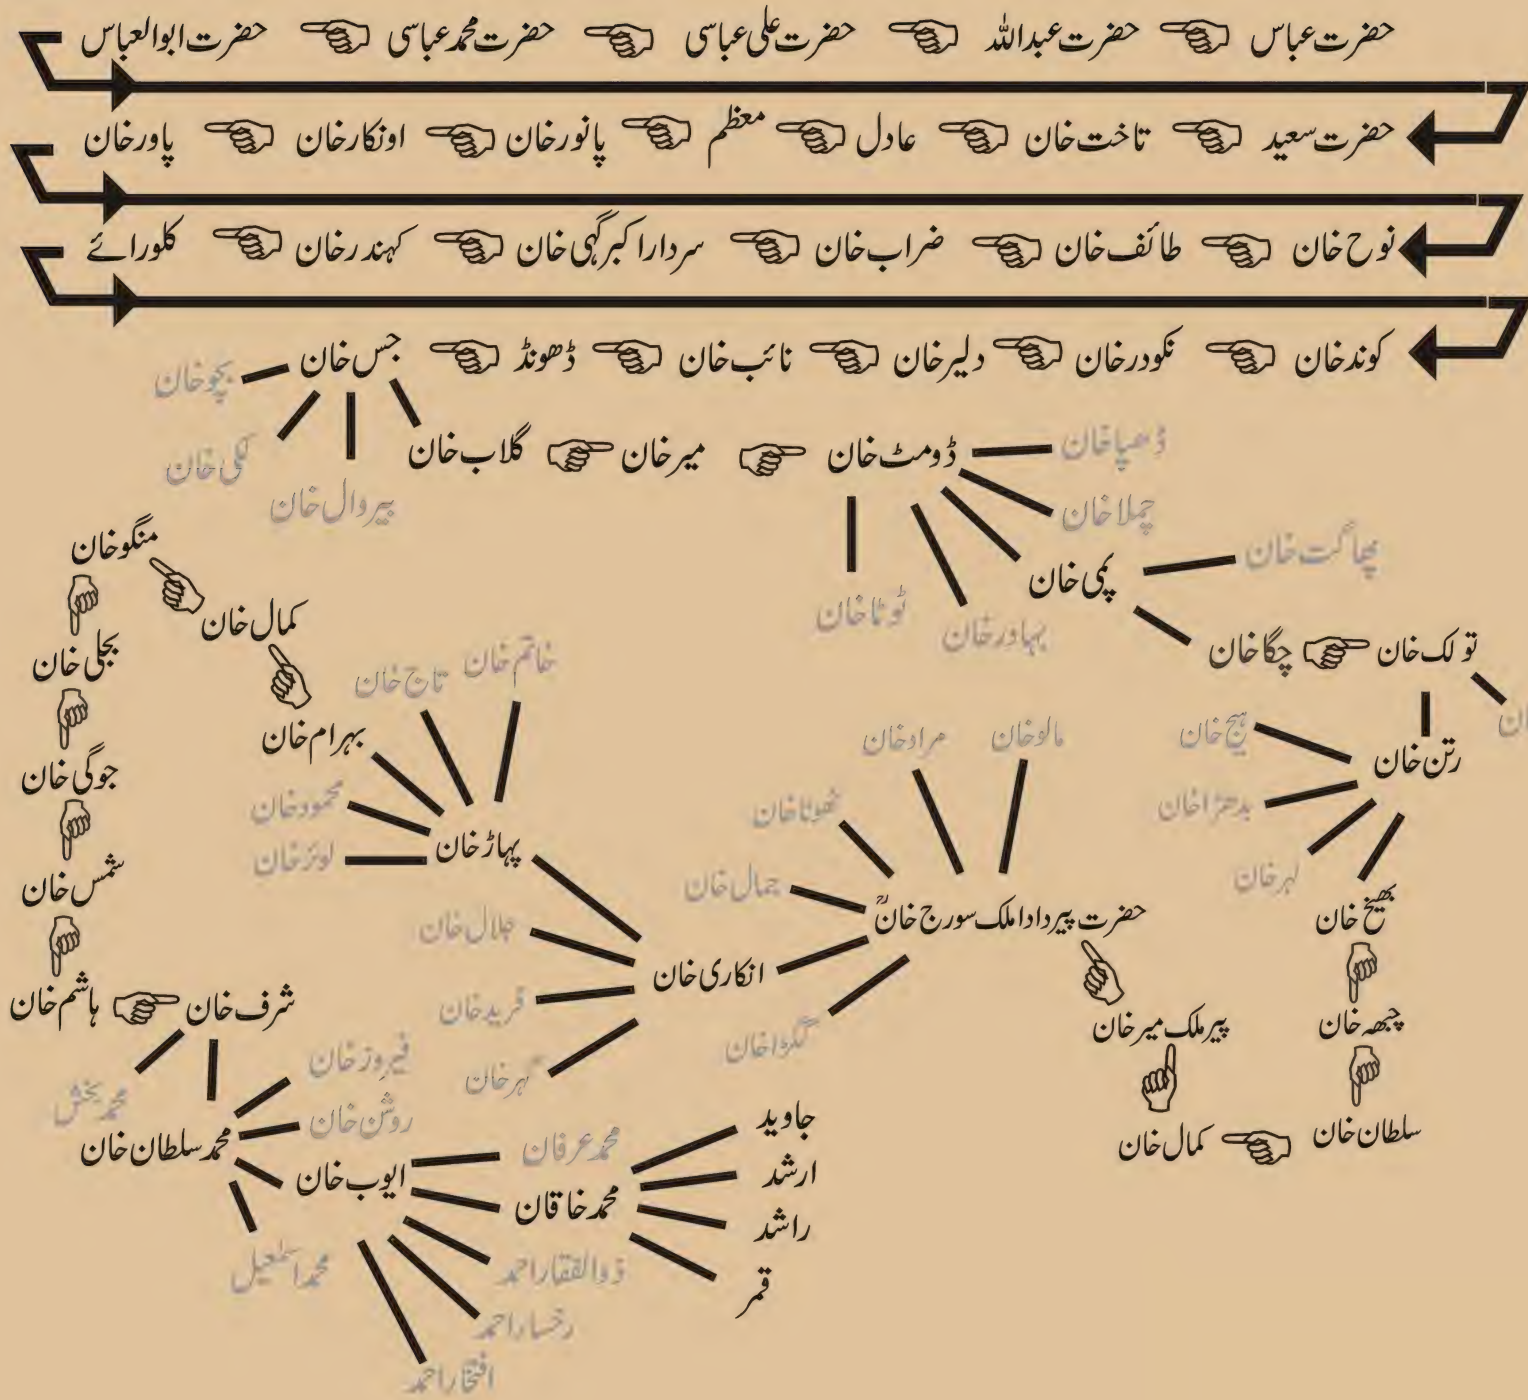 حضرت عباس حضرت عبداللہ حضرت علی عباسی حضرت محمد عباسی حضرت ابوالعباس
حضرت سعید تاخت خان عادل معظم پانور خان اونکار خان پاور خان
نوح خان طائف خان ضراب خان سردار اکبر گہی خان کہندر خان کلورائے
کوند خان نکودر خان دلیر خان نائب خان ڈھونڈ جس خان
بچو خان
لکی خان
بیروال خان
گلاب خان
میر خان
ڈومٹ خان
ڈھپا خان
چملا خان
پمی خان
بہادر خان
ٹوٹا خان
پھاگت خان
چگا خان
تولک خان
ان
رتن خان
ہیج خان
بدھڑا خان
لہر خان
بھیخ خان
چبھہ خان
سلطان خان
کمال خان
پیر ملک میر خان
حضرت پیر دادا ملک سورج خانؒ
مالو خان
مراد خان
ٹھوٹا خان
جمال خان
گکڑا خان
انکاری خان
جلال خان
فرید خان
گہر خان
پہاڑ خان
خاتم خان
تاج خان
بہرام خان
محمود خان
لوئر خان
کمال خان
منگو خان
بجلی خان
جوگی خان
شمس خان
ہاشم خان
شرف خان
محمد بخش
محمد سلطان خان
فیروز خان
روشن خان
ایوب خان
محمد اسمٰعیل
محمد عرفان
محمد خاقان
ذوالفقار احمد
رخسار احمد
افتخار احمد
جاوید
ارشد
راشد
قمر